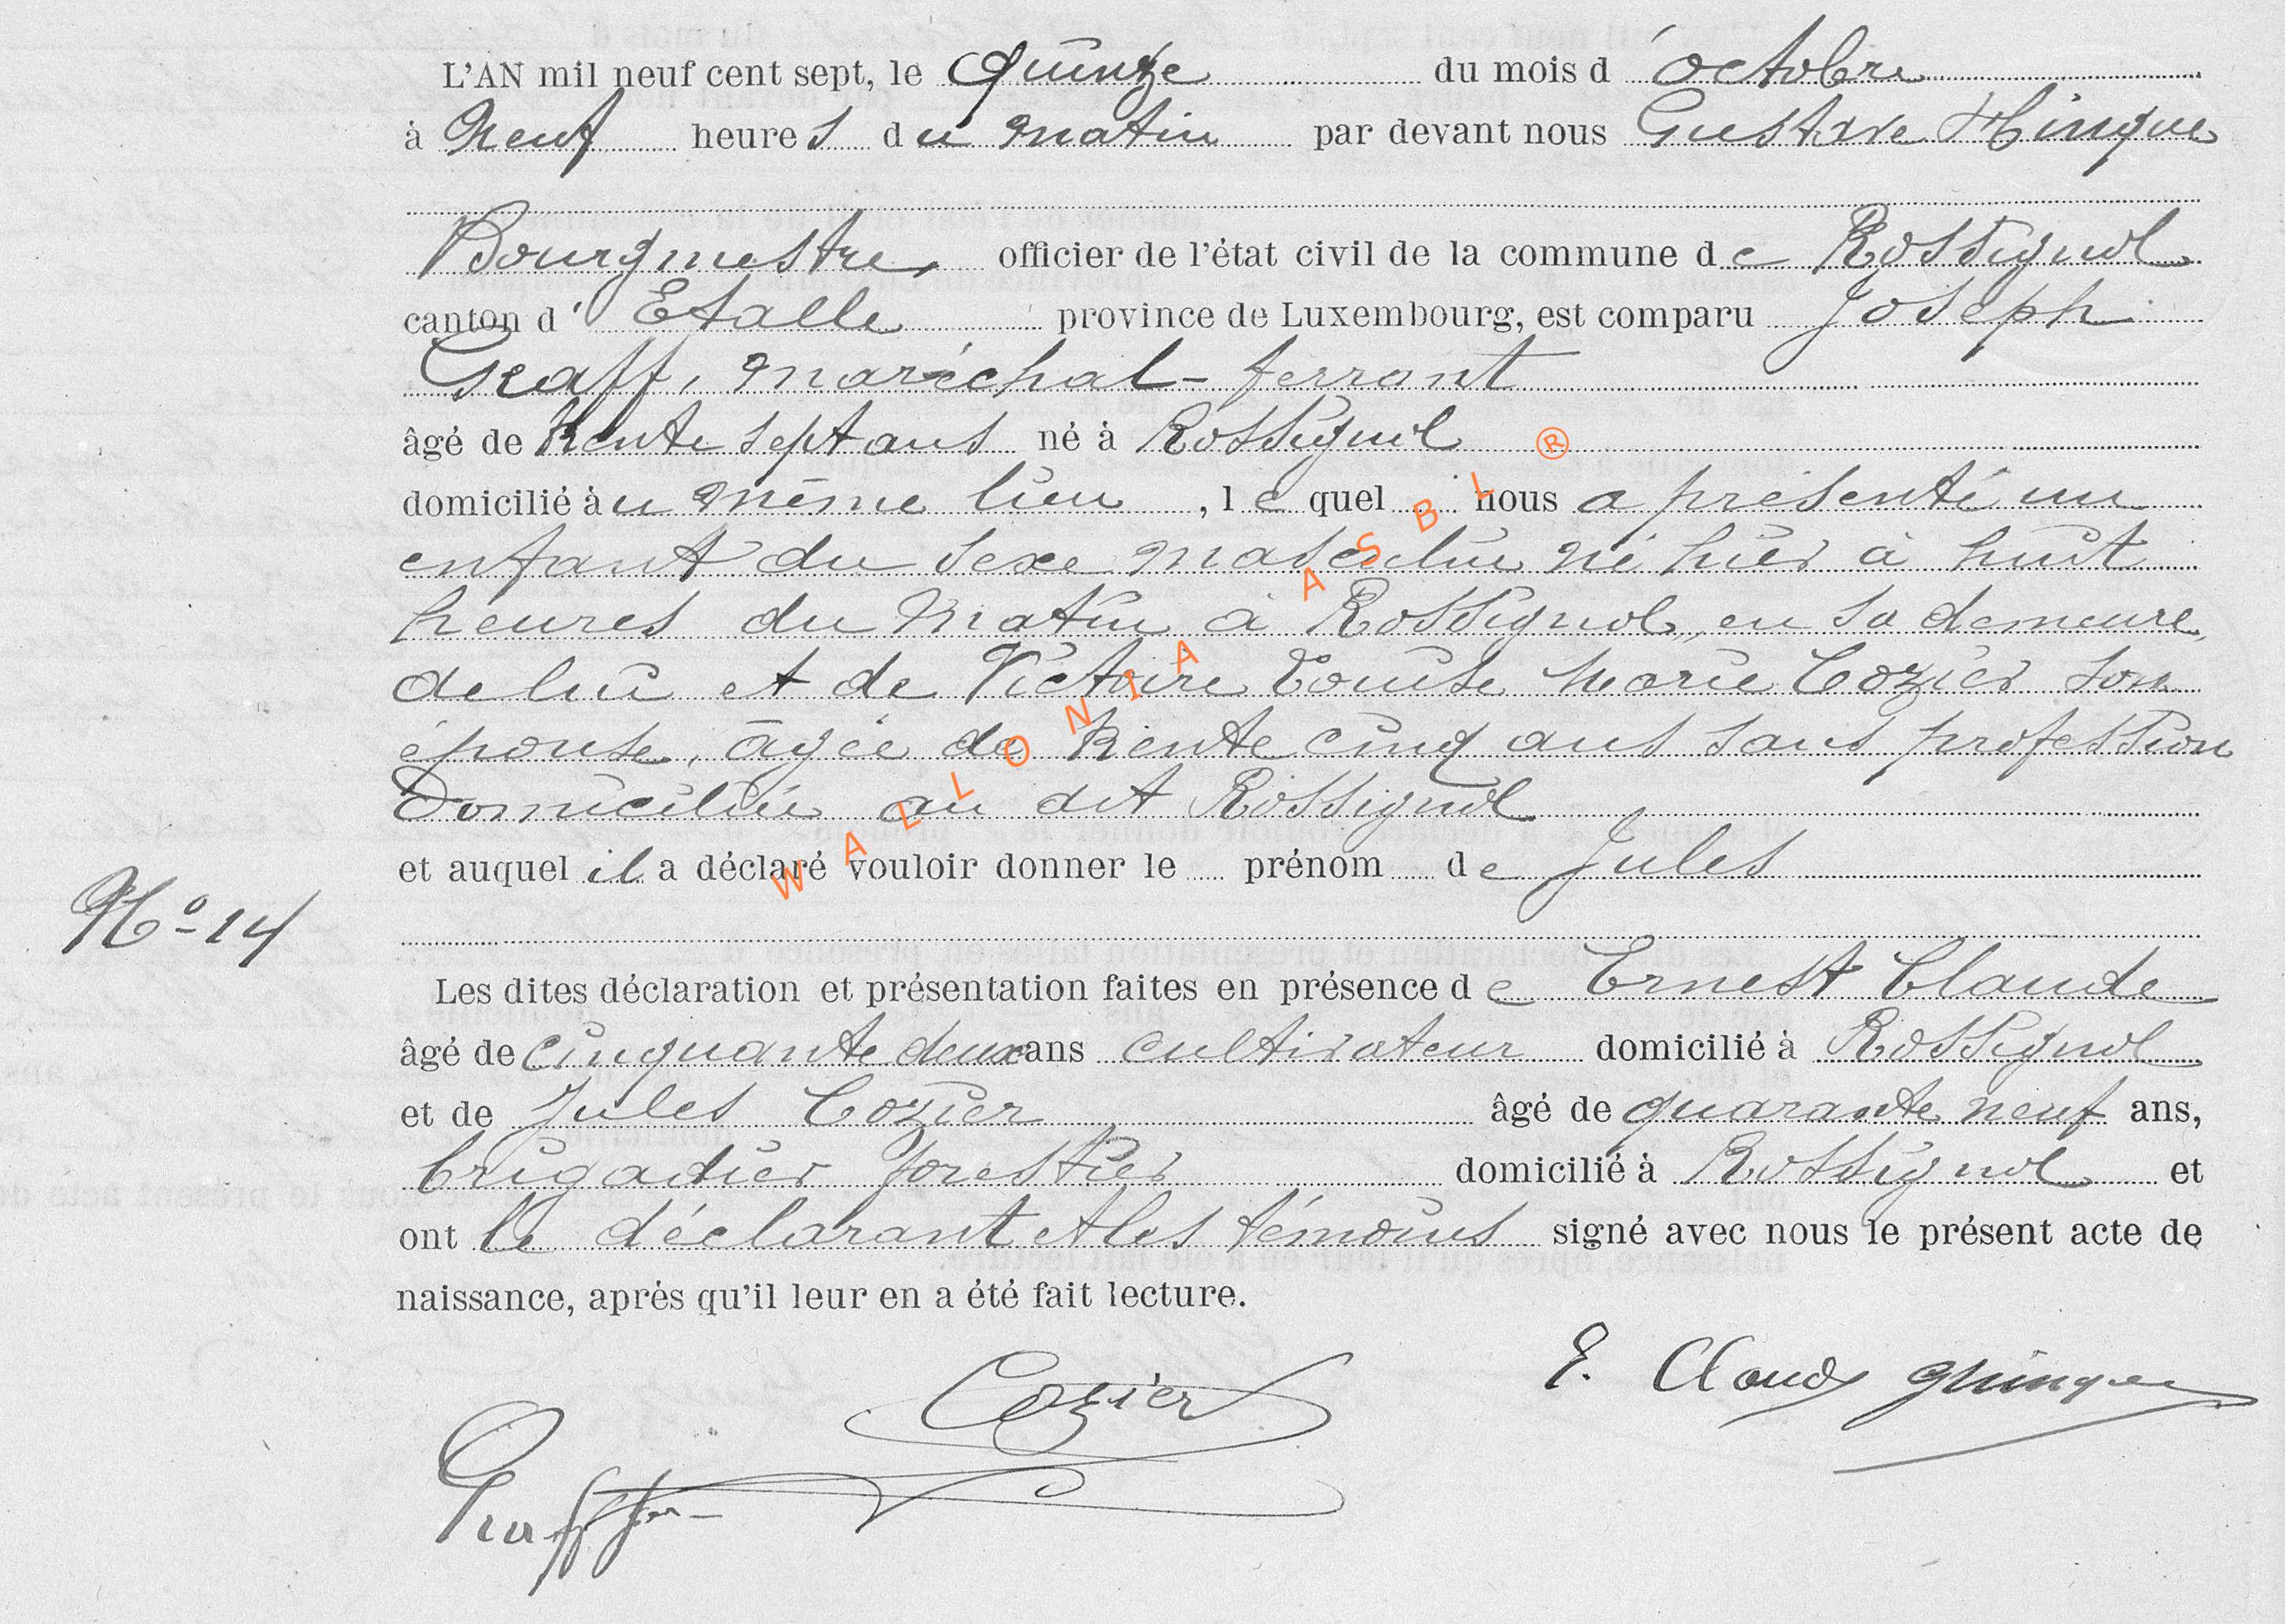 L'AN mil neuf cent sept, le Quinze du mois d'octobre
à Neuf heures du matin par devant nous Gustave Hinque
Bourgmestre, officier de l'état civil de la commune de Rossignol
canton d'Etalle province de Luxembourg, est comparu Joseph
Graff, maréchal-ferrant
âgé de trente sept ans né à Rossignol
domicilié àu même lieu, lequel nous a présenté un
enfant du sexe masculin né hier à huit
heures du matin à Rossignol, en sa demeure,
de lui et de Victoire Louise Marie Cozier son
épouse, âgée de trente cinq ans sans profession
Domiciliée au dit Rossignol
et auquel il a déclaré vouloir donner le prénom de Jules
Nº 14
Les dites déclaration et présentation faites en présence de Ernest Claude
âgé de cinquante deux ans cultivateur domicilié à Rossignol
et de Jules Cozier âgé de quarante neuf ans,
brigadier forestier domicilié à Rossignol et
ont le déclarant et les témoins signé avec nous le présent acte de
naissance, après qu'il leur en a été fait lecture.
E. Claude GHinque
Cozier
Graff
WALLONIA ASBL ®